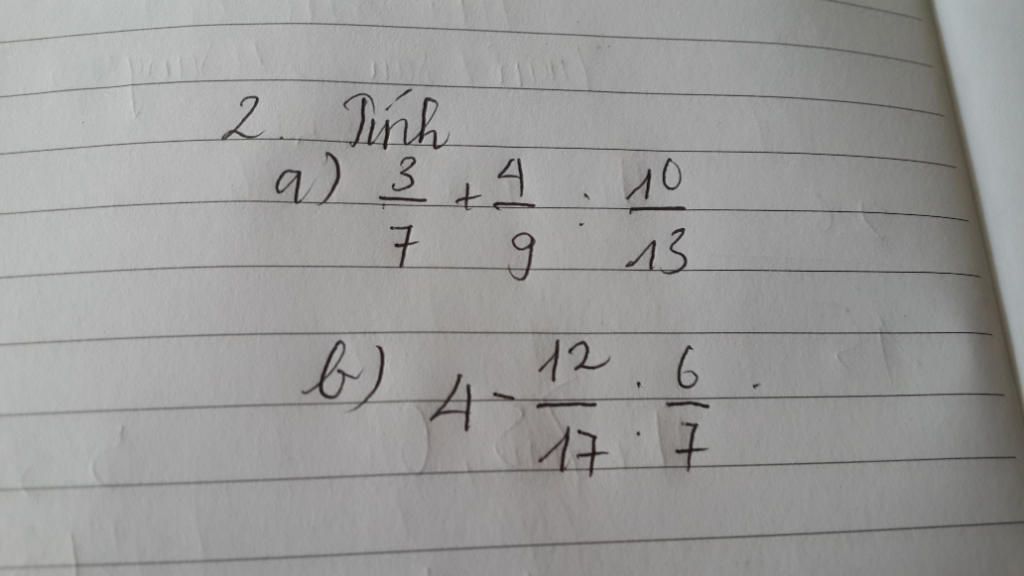 2. Tính
a) 3/7 + 4/9 : 10/13
b) 4 - 12/17 : 6/7 .